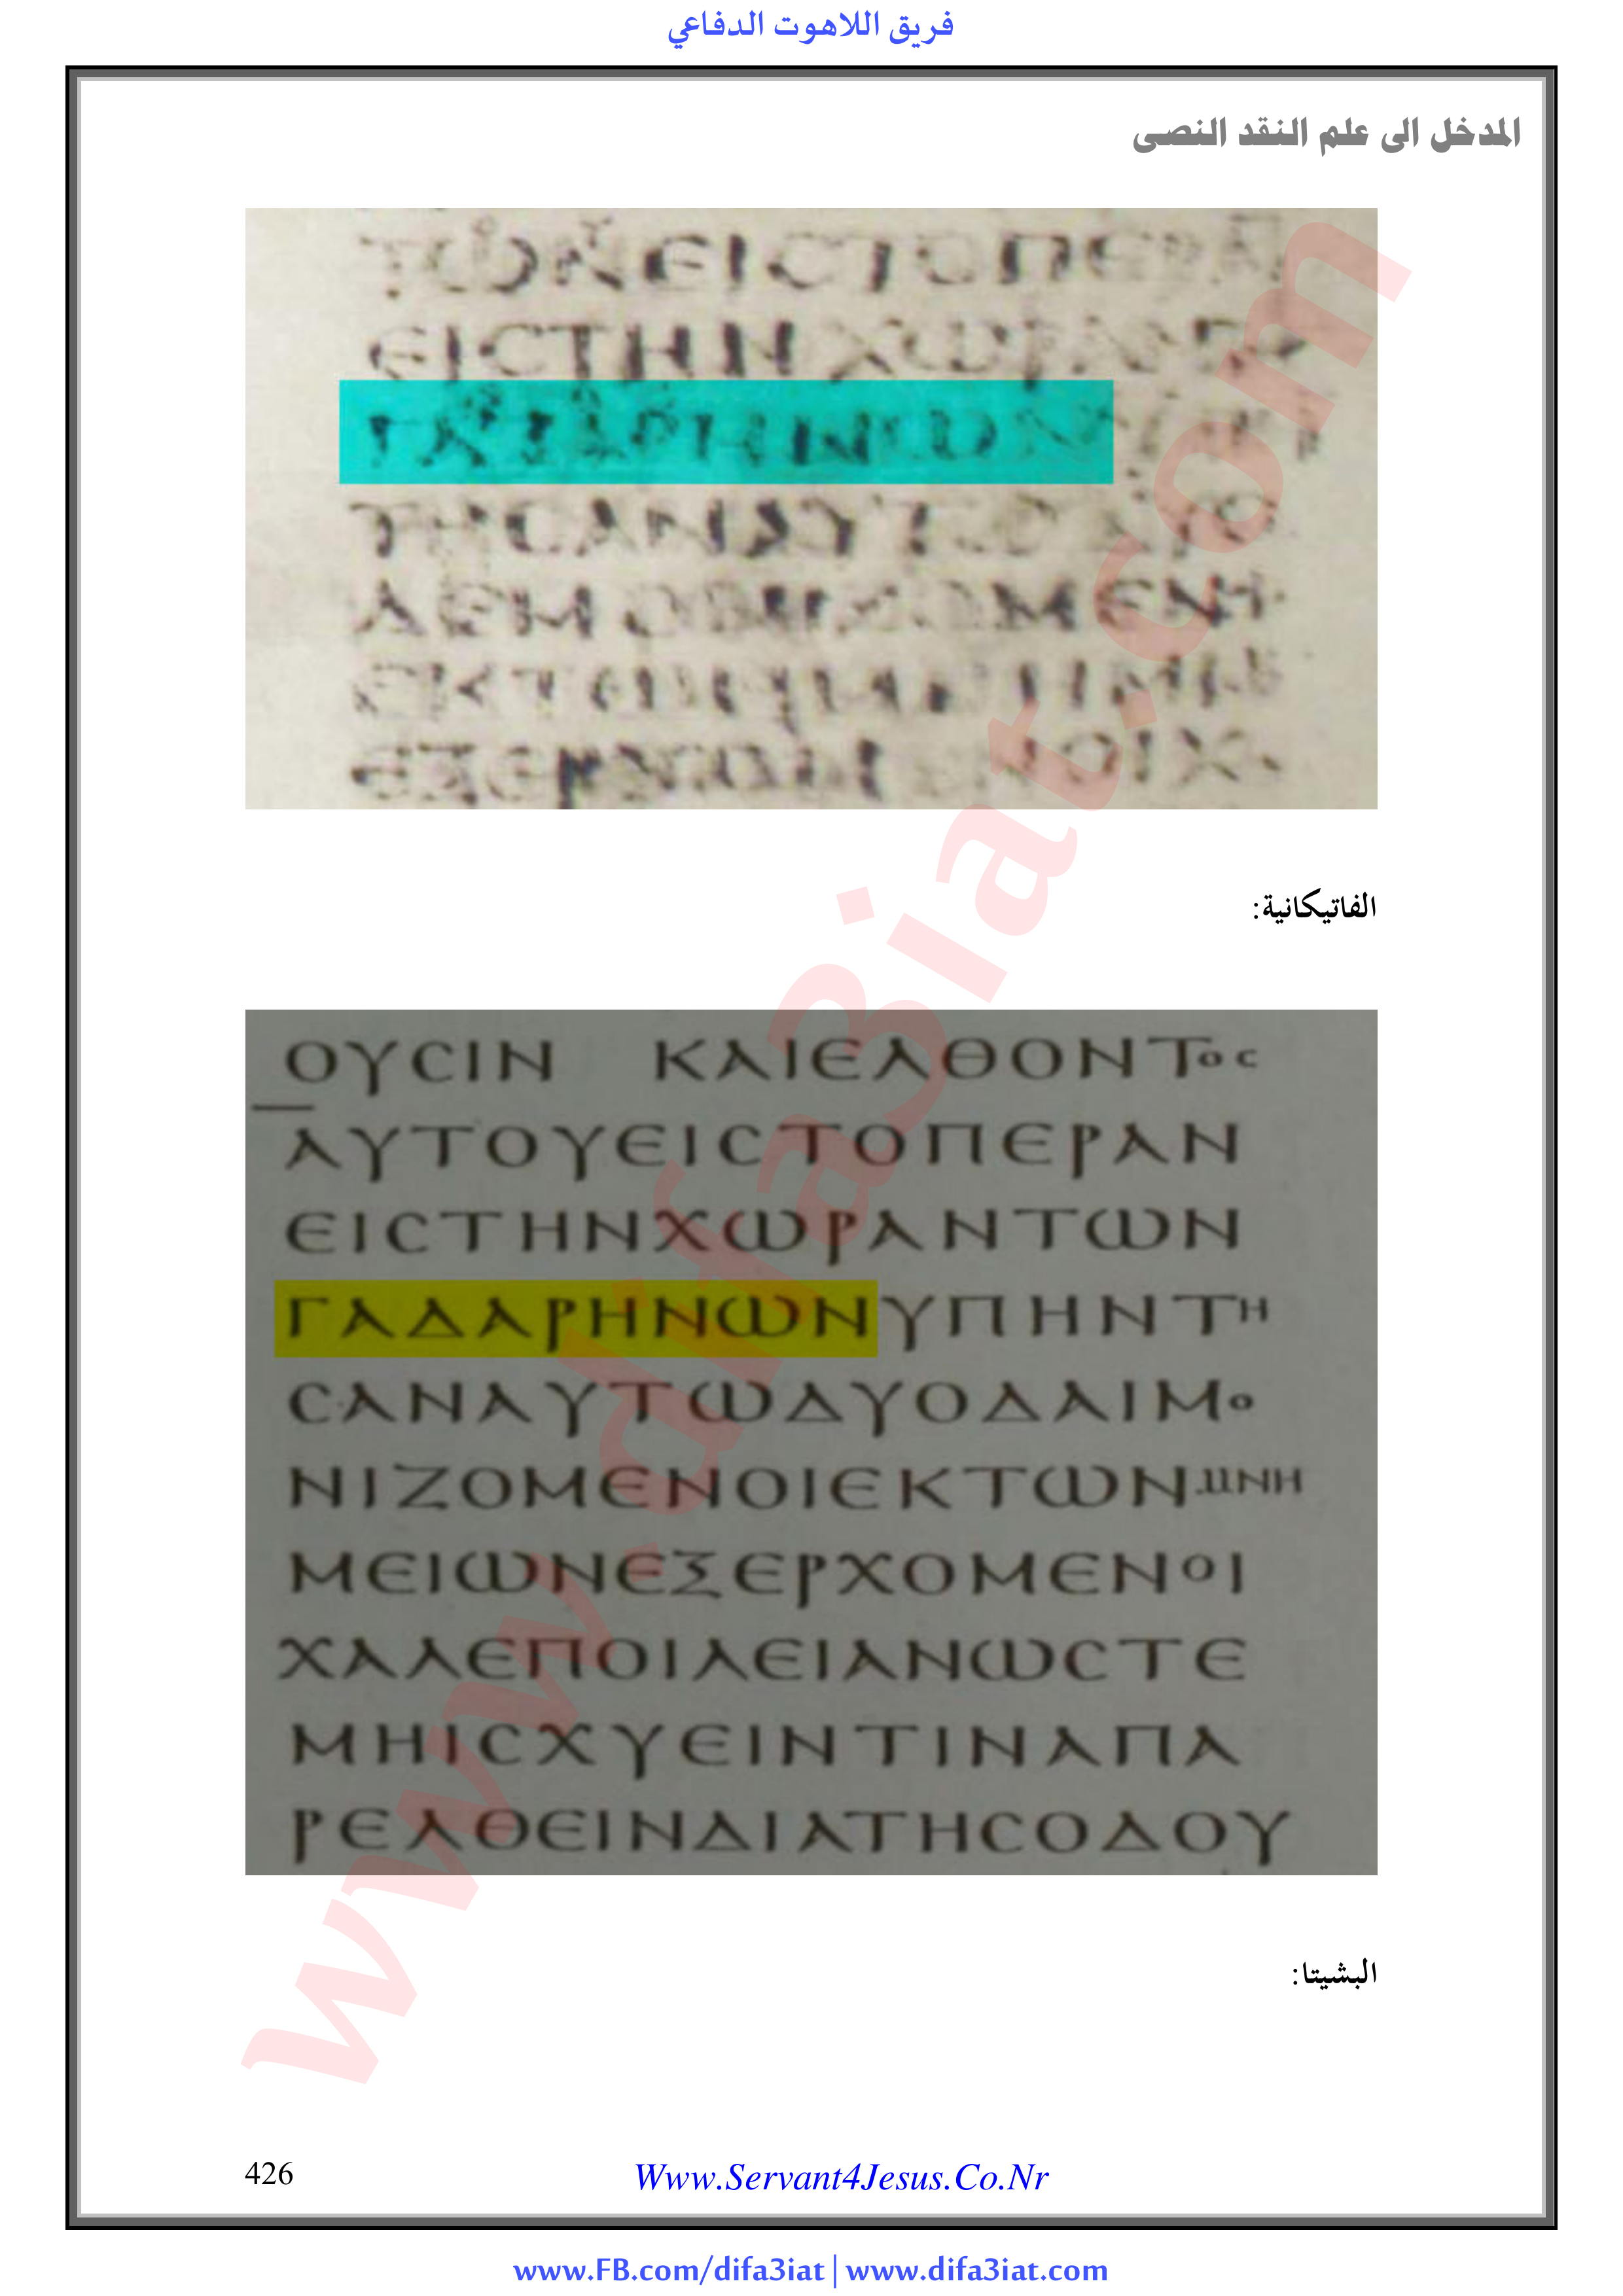 فريق اللاهوت الدفاعي
المدخل الى علم النقد النصى
ΕΙCΤΟΠΕΡΑ
ΕΙCΤΗΝΧΩΡΑΝΤΩ
الفاتيكانية:
ΟΥCΙΝ ΚΑΙΕΛΘΟΝΤΟC
ΑΥΤΟΥΕΙCΤΟΠΕΡΑΝ
ΕΙCΤΗΝΧΩΡΑΝΤΩΝ
ΓΑΔΑΡΗΝΩΝΥΠΗΝΤΗ
CΑΝΑΥΤΩΔΥΟΔΑΙΜΟ
ΝΙΖΟΜΕΝΟΙΕΚΤΩΝΜΝΗ
ΜΕΙΩΝΕΞΕΡΧΟΜΕΝΟΙ
ΧΑΛΕΠΟΙΛΕΙΑΝΩCΤΕ
ΜΗΙCΧΥΕΙΝΤΙΝΑΠΑ
ΡΕΛΘΕΙΝΔΙΑΤΗCΟΔΟΥ
البشيتا:
www.difa3iat.com
426
Www.Servant4Jesus.Co.Nr
www.FB.com/difa3iat | www.difa3iat.com